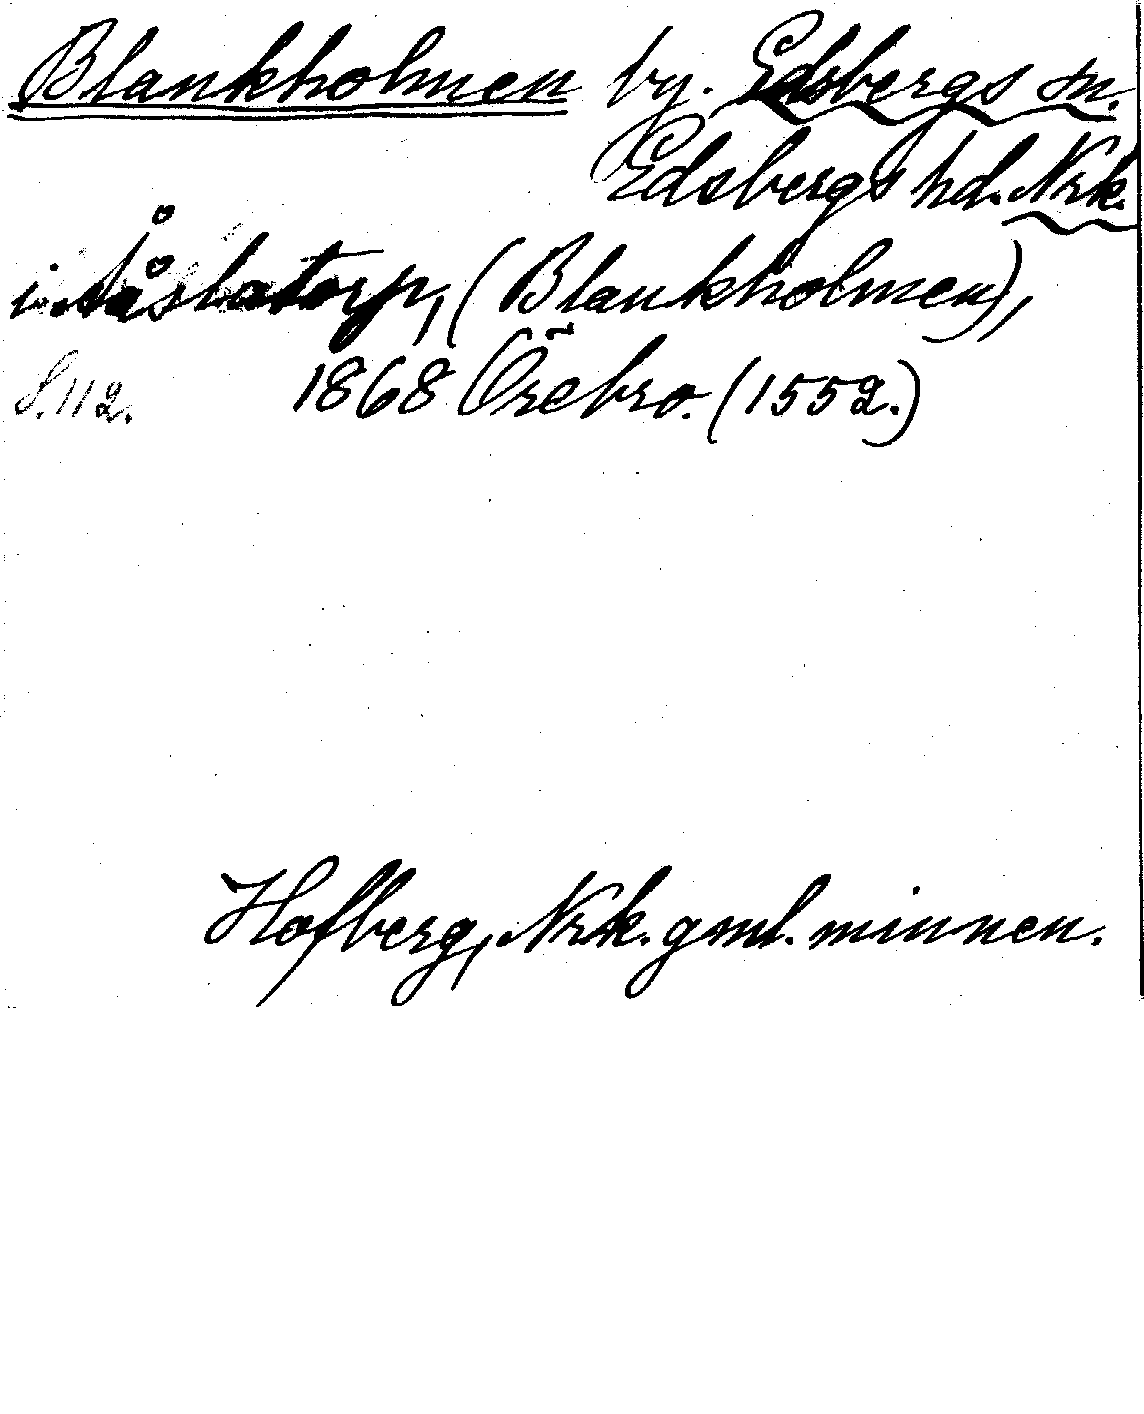 Blankholmen by. Edsbergs sn.
Edsbergs hd. Nrk.
i Åslatorp, (Blankholmen),
S. 112. 1868 Örebro. (1552.)
Hofberg, Nrk. gml. minnen.